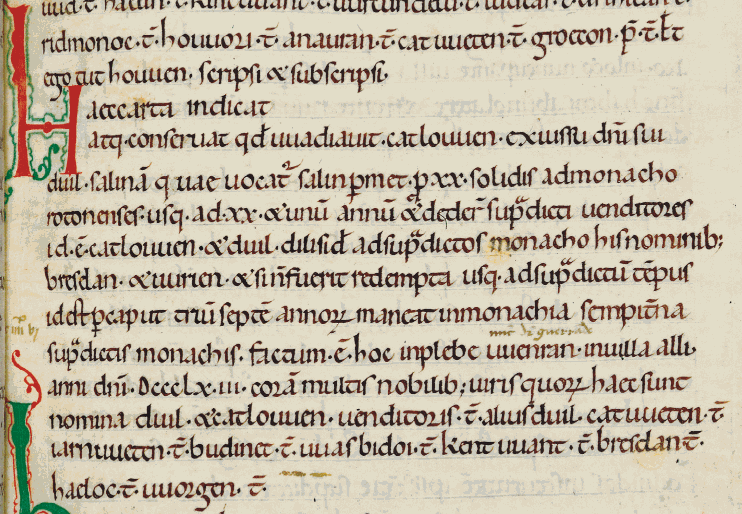 ridmonoc·t̄·houuori·t̄·anauran·t̄·catuueten·t̄·grocon·p̄·t̄·
ego cuthouuen·scripsi & subscripsi·
Haec carta indicat
atq·conseruat qđ uuadiauit·catlouuen·ex iussu dn̄i sui
duil·salinā quae uocat᷑ salin permet·p xx·solidis ad monacho
rotonenses·usq·ad·xx·& unū annū & dederunt sup̄dicti uenditores
id·ē·catlouuen·& duil·dilisiđ ad sup̄dictos monachos his nominib;
bresdan·& uurien·& si n̄ fuerit redempta usq·ad sup̄dictū tēpus
id est p caput triū septē annoꝝ maneat in monachia sempit̄na
sup̄dictis monachis·factum·ē·hoc in plebe uuenran·in uilla alli·
anni dn̄i·Dccclx·iii·corā multis nobilib; uiris quoꝝ haec sunt
nomina duil·& catlouuen·uenditoris·t̄·alius duil·catuueten·t̄·
iarnuueten·t̄·budinet·t̄·uuasbidoi·t̄·kentuuant·t̄·bresdan·t̄·
hadoc·t̄·uuorgen·t̄·